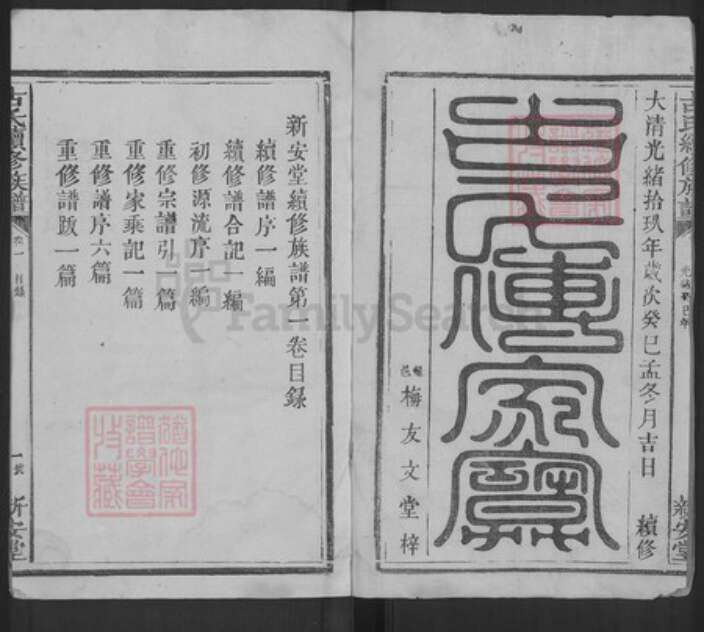 古氏續修族譜
光緒癸巳年
新安堂
大清光緒拾玖年歲次癸巳孟冬月吉日
續修
古氏傳家寶
梅友文堂梓
新安堂續修族譜第一卷目錄
續修譜序一編
續修譜合記一編
初修源流序一編
重修宗譜引一篇
重修家乘記一篇
重修譜序六篇
重修譜跋一篇
古氏續修族譜
卷一
目錄
一
新安堂
譜學會
珍藏
FamilySearch